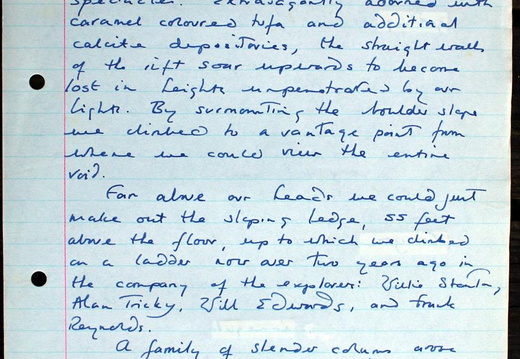 spectacles. Extravagantly adorned with
caramel coloured tufa and additional
calcite depositories, the straight walls
of the rift soar upwards to become
lost in heights unpenetrated by our
lights. By surmounting the boulder slope
we climbed to a vantage point from
where we could view the entire
void.
Far above our heads we could just
make out the sloping ledge, 55 feet
above the floor, up to which we climbed
on a ladder now over two years ago in
the company of the explorers: Willie Stanton,
Alan Tricky, Will Edwards, and Frank
Reynolds.
A family of slender columns arose